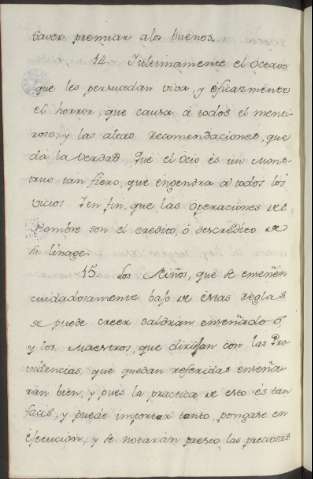 saver premiar alos buenos.
14. Intimamente el Oceano
que les persuadan viva, y eficazmente
el horror, que causa à todos el menti
roso, y las altas recomendaciones, que
da la Verdad. Que el Ocio es un Mons
truo tan fiero, que engendra à todos los
vicios Y en fin, que las operaciones del
hombre son el credito, ó descredito de
su linage.
15. Los Niños, que se enseñen
cuidadosamente bajo de estas reglas
se puede creer saldran enseñados
y los Maestros, que dirijan con las Pro
videncias, que quedan referidas enseña
ran bien, y pues la practica de esto és tan
facil, y puede importar tanto, pongase en
egecucion, y se notaran presto las preciosas